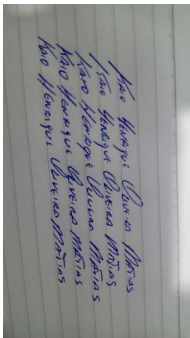 Kaio Henrique Oliveira Matias
Kaio Henrique Oliveira Matias
Kaio Henrique Oliveira Matias
Kaio Henrique Oliveira Matias
Kaio Henrique Oliveira Matias